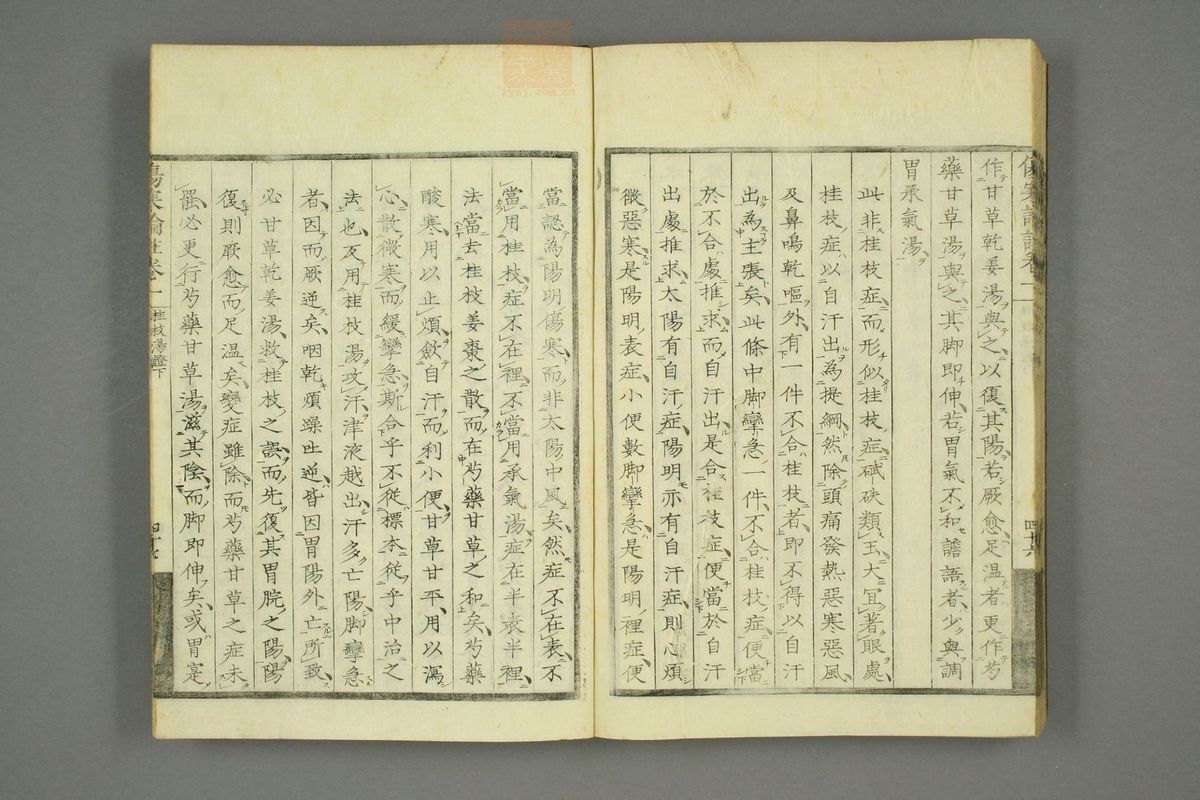 作甘草乾姜湯與之以復其陽若厥愈足温者更作芍
藥甘草湯與之其脚即伸若胃氣不和譫語者少與調
胃承氣湯
此非桂枝症而形似桂枝症碔砆類玉大冝著眼處
桂枝症以自汗出為提綱然除頭痛發熱惡寒惡風
及鼻鳴乾嘔外有一件不合桂枝者即不得以自汗
出為主張矣此條中脚攣急一件不合桂枝症便當
於不合處推求而自汗出是合桂枝症便當於自汗
出處推求太陽有自汗症陽明亦有自汗症則心煩
微惡寒是陽明表症小便數脚攣急是陽明裡症便
當認為陽明傷寒而非太陽中風矣然症不在表不
當用桂枝症不在裡不當用承氣湯症在半表半裡
法當去桂枝姜棗之散而在芍藥甘草之和矣芍藥
酸寒用以止煩斂自汗而利小便甘草甘平用以瀉
心散微寒而緩攣急斯合乎不從標本從乎中治之
法也反用桂枝湯攻汗津液越出汗多亡陽脚攣急
者因而厥逆矣咽乾煩躁吐逆皆因胃陽外亡所致
必甘草乾姜湯救桂枝之誤而先復其胃脘之陽陽
復則厥愈而足温矣變症雖除而芍藥甘草之症未
罷必更行芍藥甘草湯滋其陰而脚即伸矣或胃寔
傷寒論註卷二
桂枝湯證下
四十七